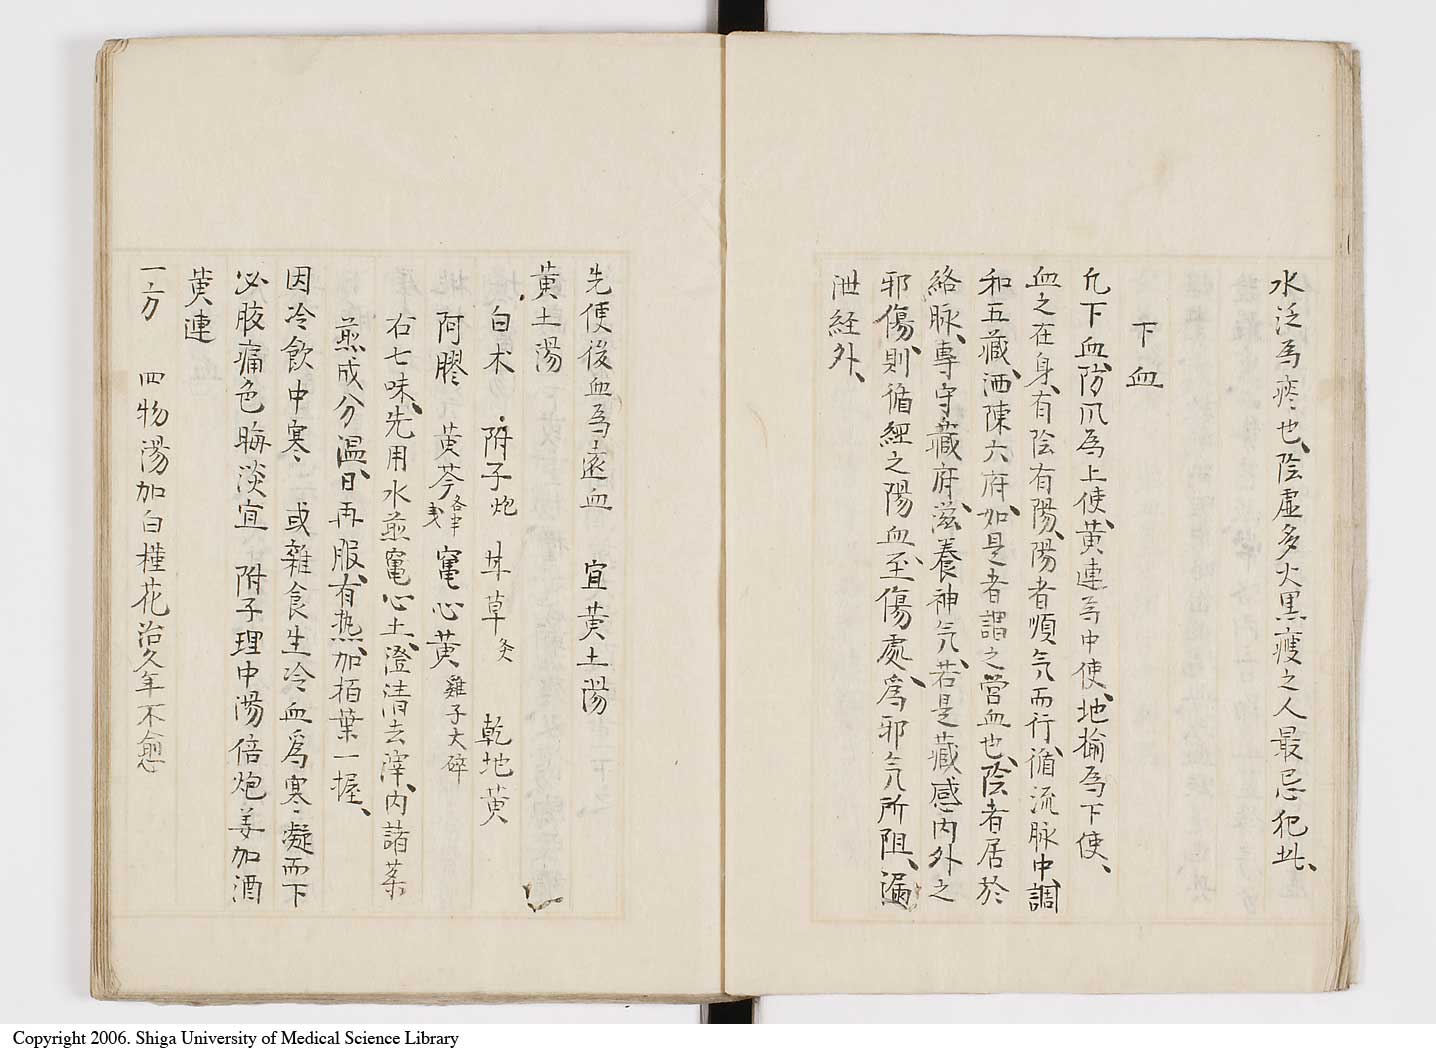 水泛為痰也、陰虚多火黒瘦之人最忌犯此、
下血
凢下血、防風為上使、黄連為中使、地榆為下使、
血之在身、有陰有陽、陽者順气而行、循流脉中、調
和五藏、洒陳六府、如是者謂之営血也、陰者居於
絡脉、專守藏府、滋養神气、若是藏感内外之
邪傷、則循經之陽血、至傷處、爲邪气所阻、漏
泄経外、
先便後血為遠血 宜黄土湯
黄土湯
白术 附子炮 甘草炙 乾地黄
阿膠 黄芩各半 竃心黄雞子大碎
右七味、先用水煎竃心土、澄清去滓、内諸薬
煎成分温、日再服、有热、加栢葉一握、
因冷飲中寒、或雜食生冷血爲寒凝而下
必腹痛色晦淡宜附子理中湯倍炮姜加酒
黄連
一方 四物湯加白槿花治久年不愈